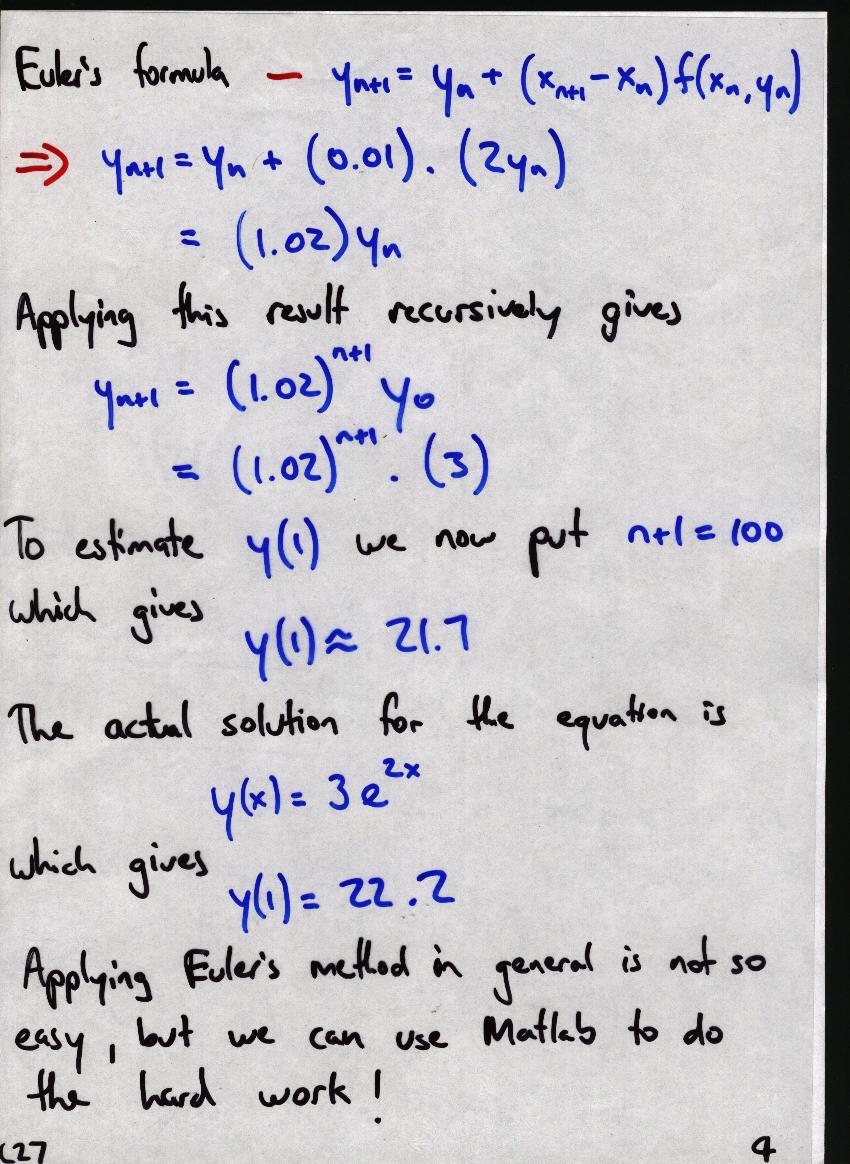 Euler's formula — yₙ₊₁ = yₙ + (xₙ₊₁ − xₙ) f(xₙ, yₙ)
⇒ yₙ₊₁ = yₙ + (0.01) . (2yₙ)
= (1.02) yₙ
Applying this result recursively gives
yₙ₊₁ = (1.02)ⁿ⁺¹ y₀
= (1.02)ⁿ⁺¹ . (3)
To estimate y(1) we now put n+1 = 100
which gives
y(1) ≈ 21.7
The actual solution for the equation is
y(x) = 3e²ˣ
which gives
y(1) = 22.2
Applying Euler's method in general is not so
easy, but we can use Matlab to do
the hard work!
L27 4